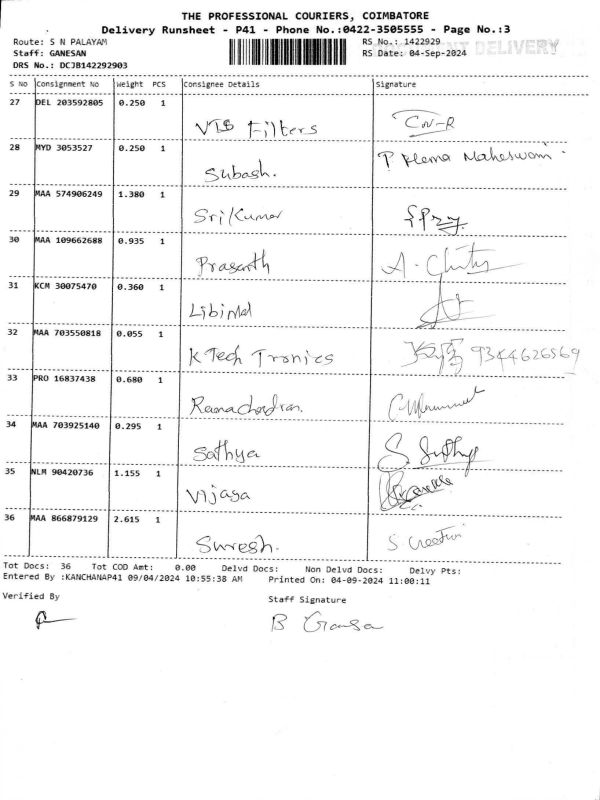 THE PROFESSIONAL COURIERS, COIMBATORE
Delivery Runsheet - P41 - Phone No.:0422-3505555 - Page No.:3
Route: S N PALAYAM RS No.: 1422929 DELIVERY
Staff: GANESAN RS Date: 04-Sep-2024
DRS No.: DCJB142292903
S No Consignment No Weight PCS Consignee Details Signature
27 DEL 203592805 0.250 1 VIB Filters
28 MYD 3053527 0.250 1 Subash. P Hema Maheswari
29 MAA 574906249 1.380 1 Srikumar
30 MAA 109662688 0.935 1 Prasanth
31 KCM 30075470 0.360 1
32 MAA 703550818 0.055 1 K Tech Tronics 9344626569
33 PRO 16837438 0.680 1 Ramachandran.
34 MAA 703925140 0.295 1 Sathya
35 NLM 90420736 1.155 1 Vijaya
36 MAA 866879129 2.615 1 Suresh.
Tot Docs: 36 Tot COD Amt: 0.00 Delvd Docs: Non Delvd Docs: Delvy Pts:
Entered By :KANCHANAP41 09/04/2024 10:55:38 AM Printed On: 04-09-2024 11:00:11
Verified By Staff Signature
B